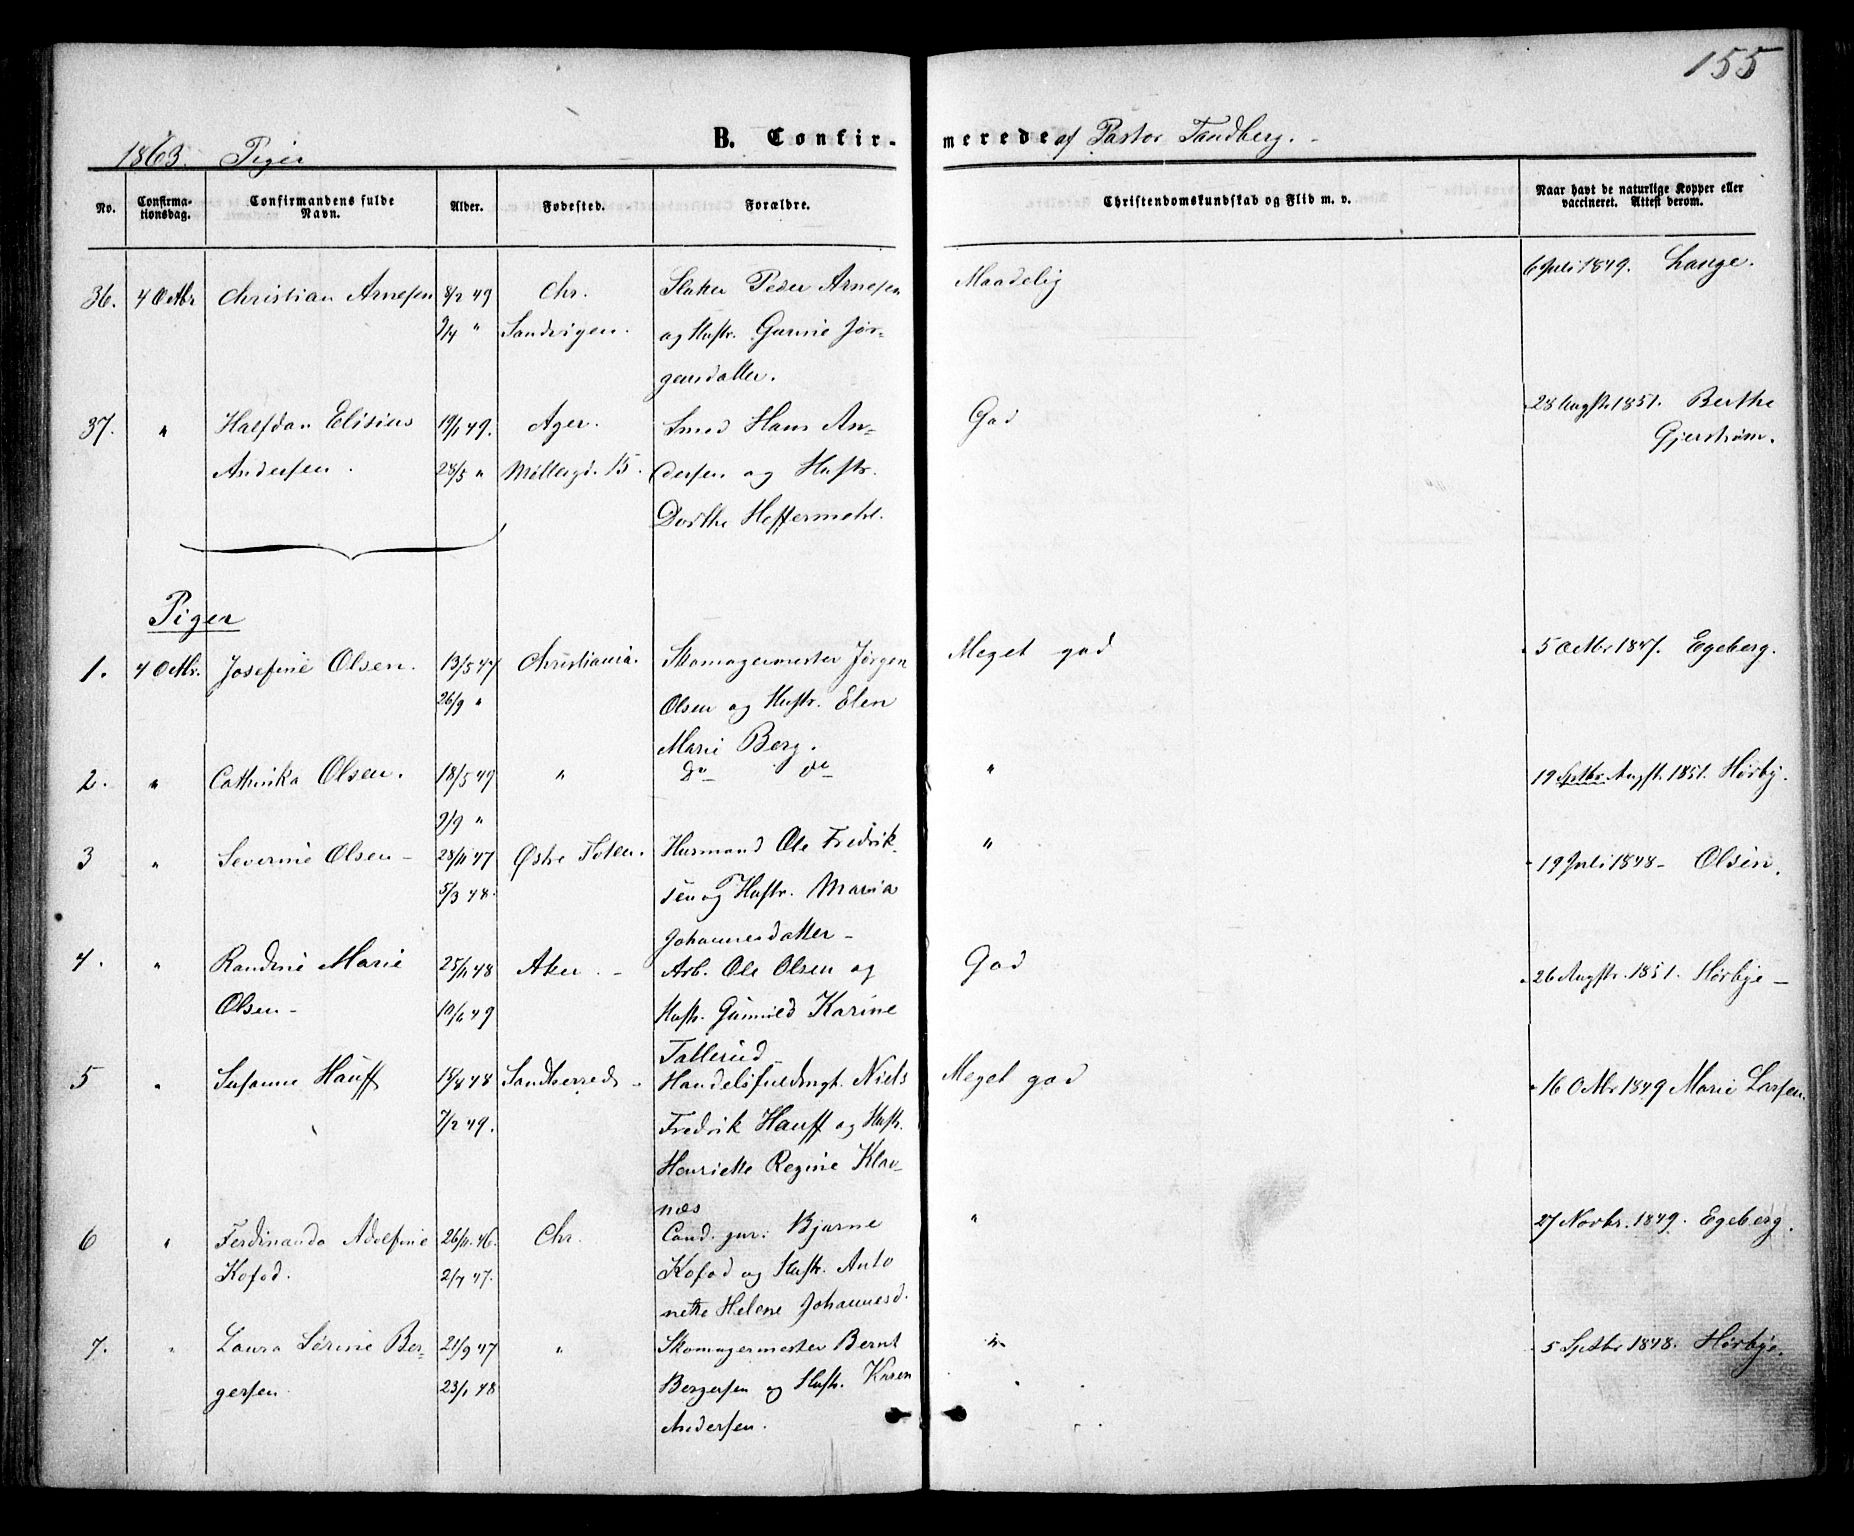 155
1863. Piger B. Confirmerede af Pastor Tandberg.
No. Confirma-tionsdag. Confirmandens fulde Navn. Alder. Fødested. Forældre. Christendomskundskab og Flid m. v. Naar havt de naturlige Kopper eller vaccineret. Attest derom.
36. 4 Octbr Christian Arnesen 8/2 49 Chr. Peder Arnesen Maadelig 6 Juli 1849. Lange.
9/4 " Sandvigen. og Hustr. Gunnie Jør-
gensdatter.
37. " Halfdan Elisius 19/1 49. Ager. Smed Hans An- God 28 Augst. 1851. Berthe
Andersen. 28/5 " Møllergd. 15. dersen og Hustr. Gjerstrøm.
Dorthe Heffermehl.
Piger
1. 4 Octbr. Josefine Olsen. 13/5 47 Christiania. Skomagermester Jørgen Meget god 5 Octbr 1847. Egeberg.
26/9 " Olsen og Hustr. Elen
Marie Berg.
2. " Cathinka Olsen. 18/5 49 " do do " 19 Septbr. Augst. 1851. Hørby.
9/9 "
3 " Severine Olsen - 28/11 47 Østre Toten. Husmand Ole Fredrik- " 19 Juli 1848 - Olsen.
5/3 48. sen og Hustr. Maria
Johannesdatter -
4. " Randine Marie 25/11 48 Aker. - Arb. Ole Olsen og God 26 Augstr. 1851. Hørbye -
Olsen - 10/6 49 Hustr. Gunnild Karine
Tallerud
5 " Susanne Hauff 18/8 48 Sandherred - Handelsfuldmgt. Niels Meget god 16 Octbr 1849 Marie Larsen.
7/2 49. Fredrik Hauff og Hustr.
Henriette Regine Klav-
næs
6 " Ferdinanda Adolfine 26/11. 46. Chr. Cand. jur. Bjarne " 27 Novbr. 1849. Egeberg.
Kofod. 2/7 47. Kofod og Hustr. Anto
nette Helene Johannesd.
7. " Laura Sørine Ber- 21/9 47 " Skomagermester Bernt " 5 Septbr 1848. Hørbye.
gersen 23/1 48 Bergersen og Hustr. Karen
Andersen.